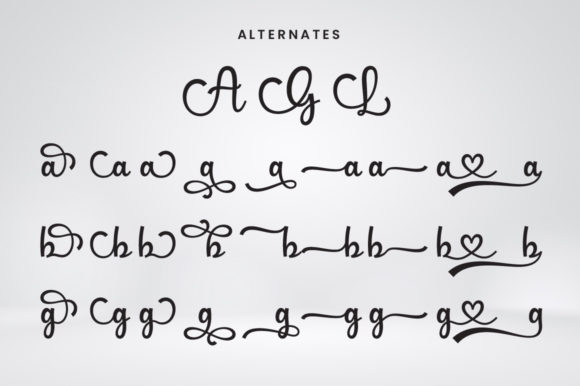 ALTERNATES
A G L
a a a a a a a a a
b b b b b b b b b
g g g g g g g g g